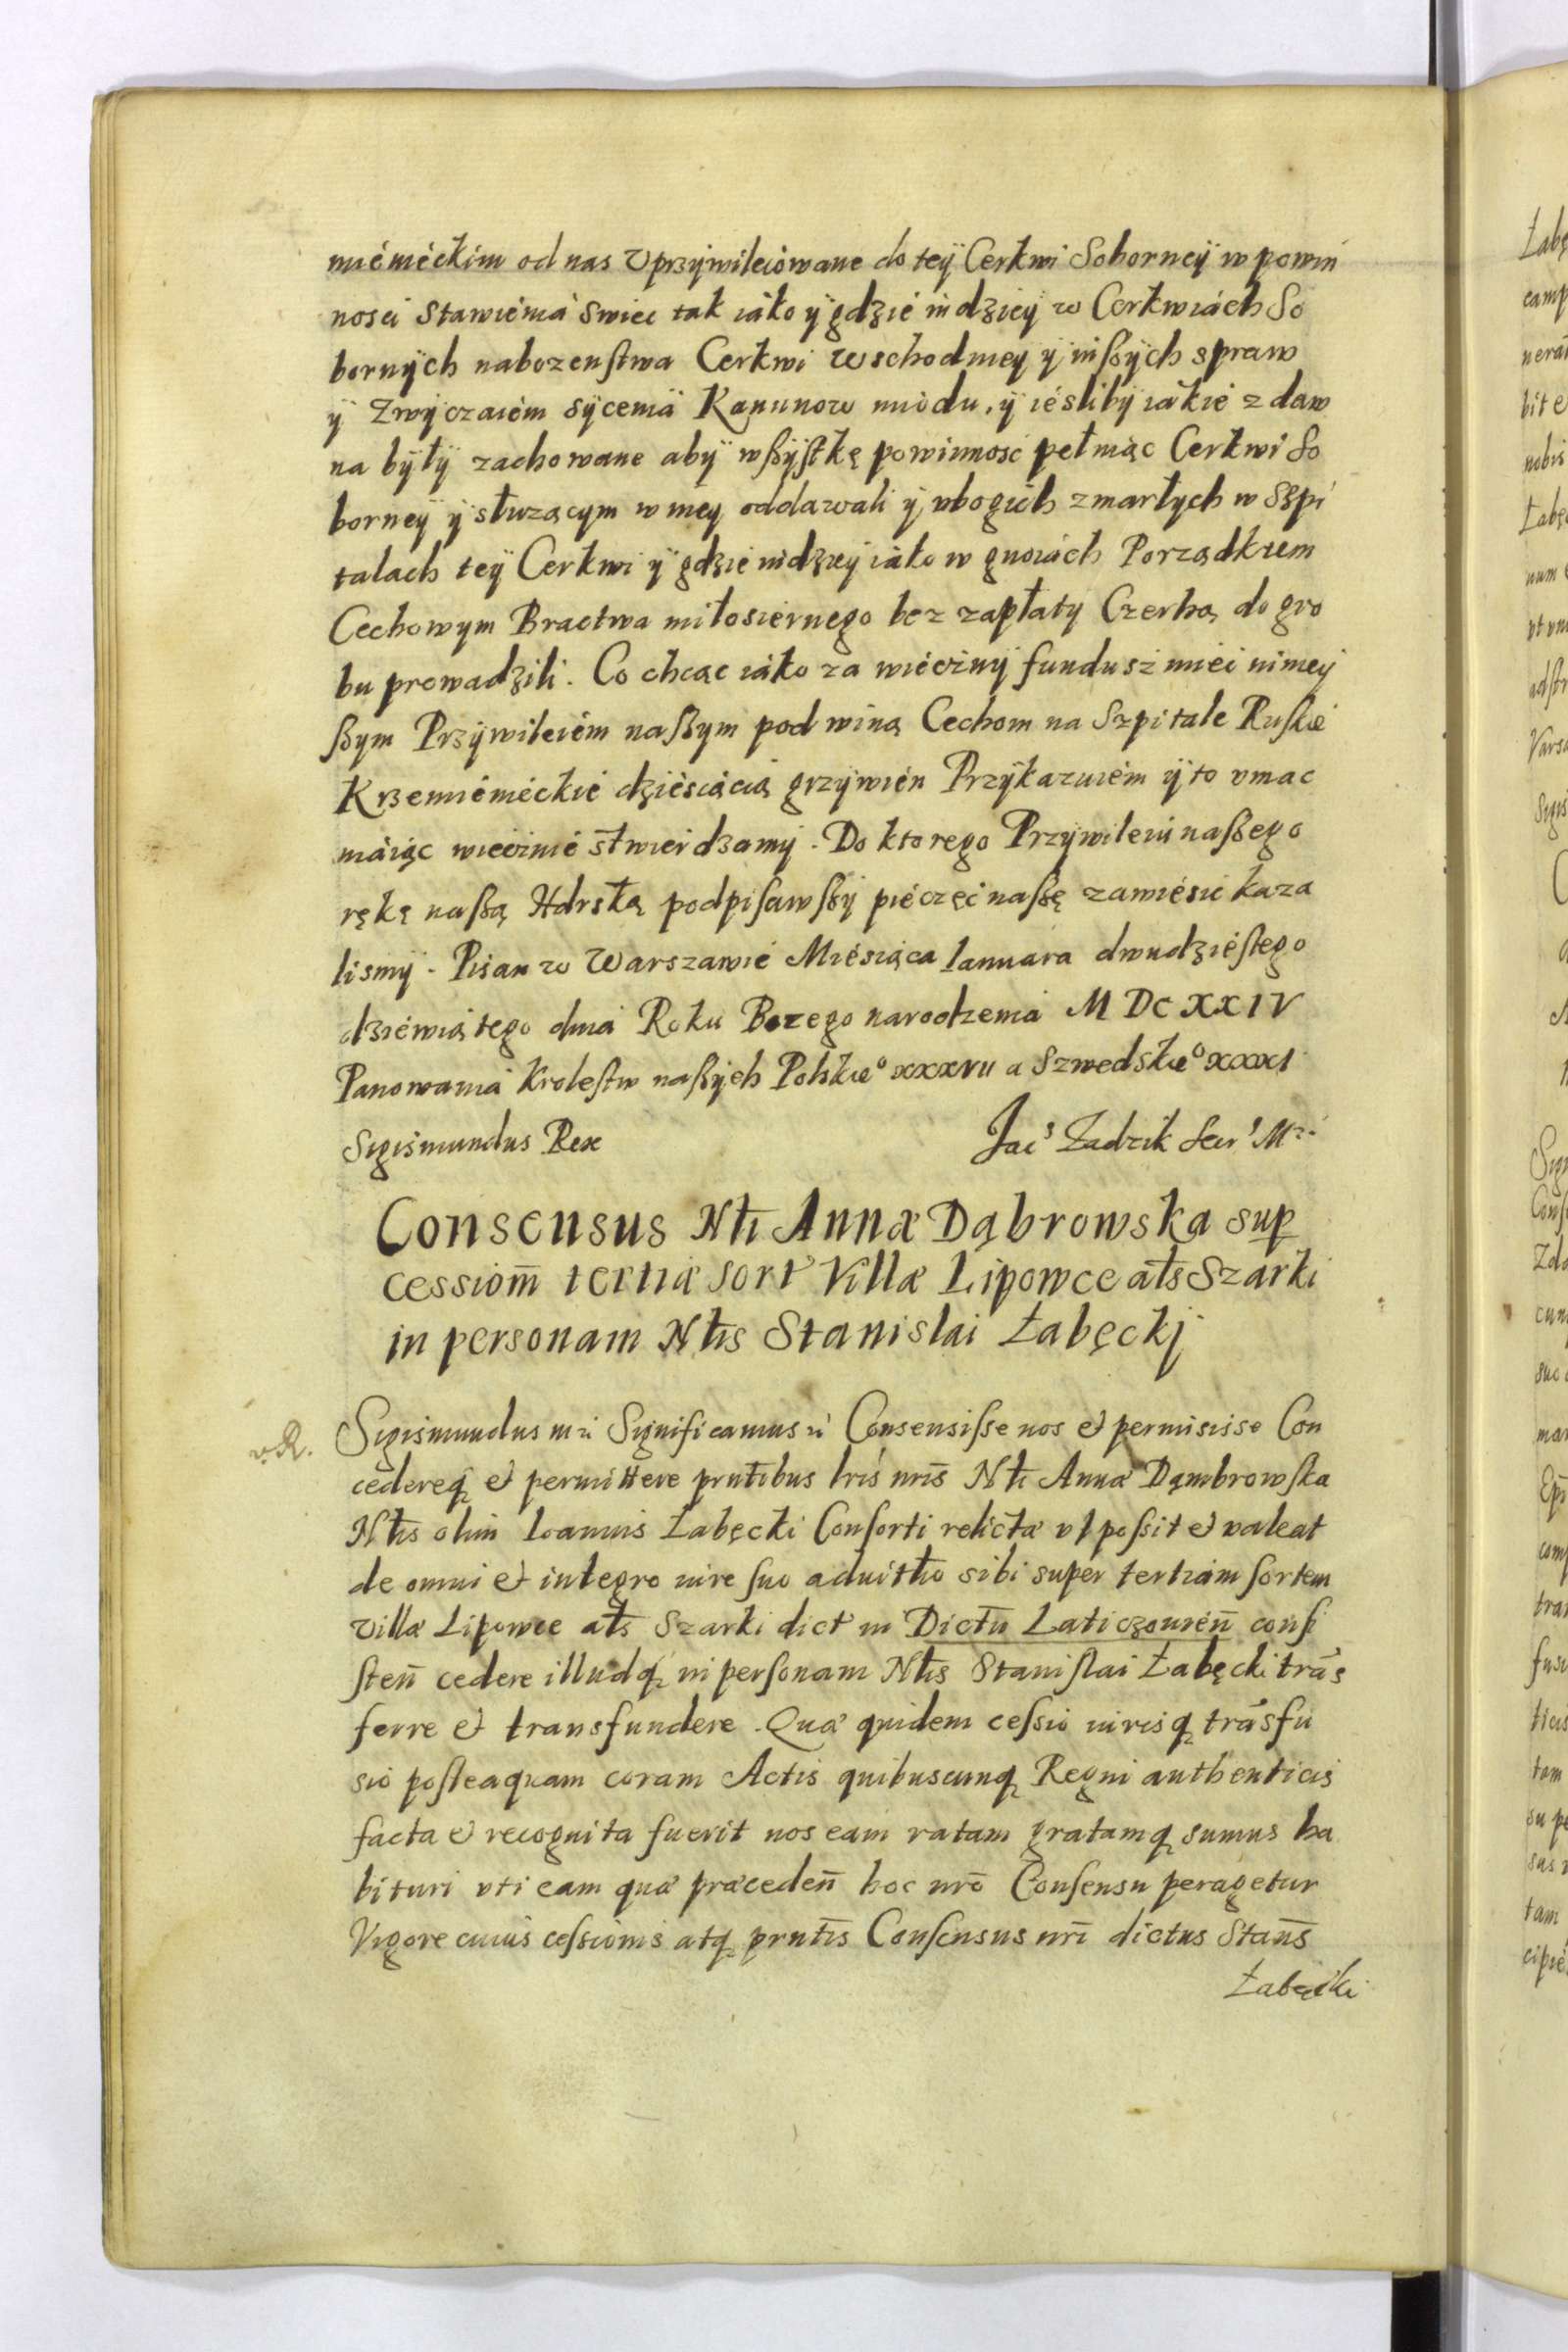 miémiéckim od nas Uprzÿwileiówane do teÿ Cerkwi Soborneÿ w powin
nosci stawiéniá swiec tak iáko ÿ gdzié indzieÿ w Cerkwiách So
bornÿch nabozenſtwa Cerkwi Wschodniey ÿ inßÿch spraw
ÿ zwÿczaiém sÿceniá Kanunow miòdu, ÿ iéslibÿ iakié z daw
na bÿłÿ zachowane abÿ wßÿſtkę powinnosć pełniąc Cerkwi So
borneÿ ÿ słuzącym w nieÿ oddawali ÿ vbogich zmarłych w Szpi
talach teÿ Cerkwi ÿ gdzié indzieÿ iáko w gnoiách Porządkiem
Cechowym Bractwa miłosiernego bez zapłaty Czerhą do gro
bu prowadzili. Co chcąc iáko za wiécżnÿ fundusż miéć nineÿ
ßym Przÿwileiém naßym pod winą Cechom na Szpitale Ruſkié
Krzemiéniéckié dziésiącią grzÿwién Przÿkazuiém ÿ to vmac
niáiąc wiécżnié stwierdzamÿ. Do ktorego Przÿwileiu naßego
rękę naßą Hdrską podpiſawſßÿ piéczęć naßę zawiésić kaza
lismÿ. Pisan w Warszawié Miésiąca Ianuara dwudziéſtego
dziéwiątego dniá Roku Bozego narodzeniá MDCXXIV
Panowaniá Kroleſtw naßÿch Polskieº xxxvii a Szwedskieº xxxi
Sigismundus Rex
Jacˢ Zadzik Secrˢ Mr.
Consensus Nłi Annæ Dąbrowska sup
cessiom̄ tertiæ sort Villæ Lipowce ałs Szarki
in personam Nłis Stanislai Łabęckj
v. R.
Sigismundus iii Significamus ii Consensiſse nos et permisisse Con
cedereq et permittere pñtibus lris nr̄is Nłi Annæ Dąmbrowſka
Nłis olim Ioannis Łabęcki Conſorti relictæ vt poſsit et valeat
de omni et integro iure ſuo advitło sibi super tertiam ſortem
villæ Lipowce ałs Szarki dict in Dictū Laticzouień conſi
ſteñ cedere illudq in perſonam Nłis Staniſlai Łabęcki trās
ferre et transfundere. Quæ quidem ceſsio iurisq trāsfu
sio poſteaquam coram Actis quibuscunq Regni authenticis
facta et recognita fuerit nos eam ratam gratamq sumus ha
bituri vti eam quæ præcedeñ hoc nr̄o Conſensu peragetur
Vigore cuius ceſsionis atq pr̄ntis Conſensus nr̄i dictus Stan̄s
Łabęcki